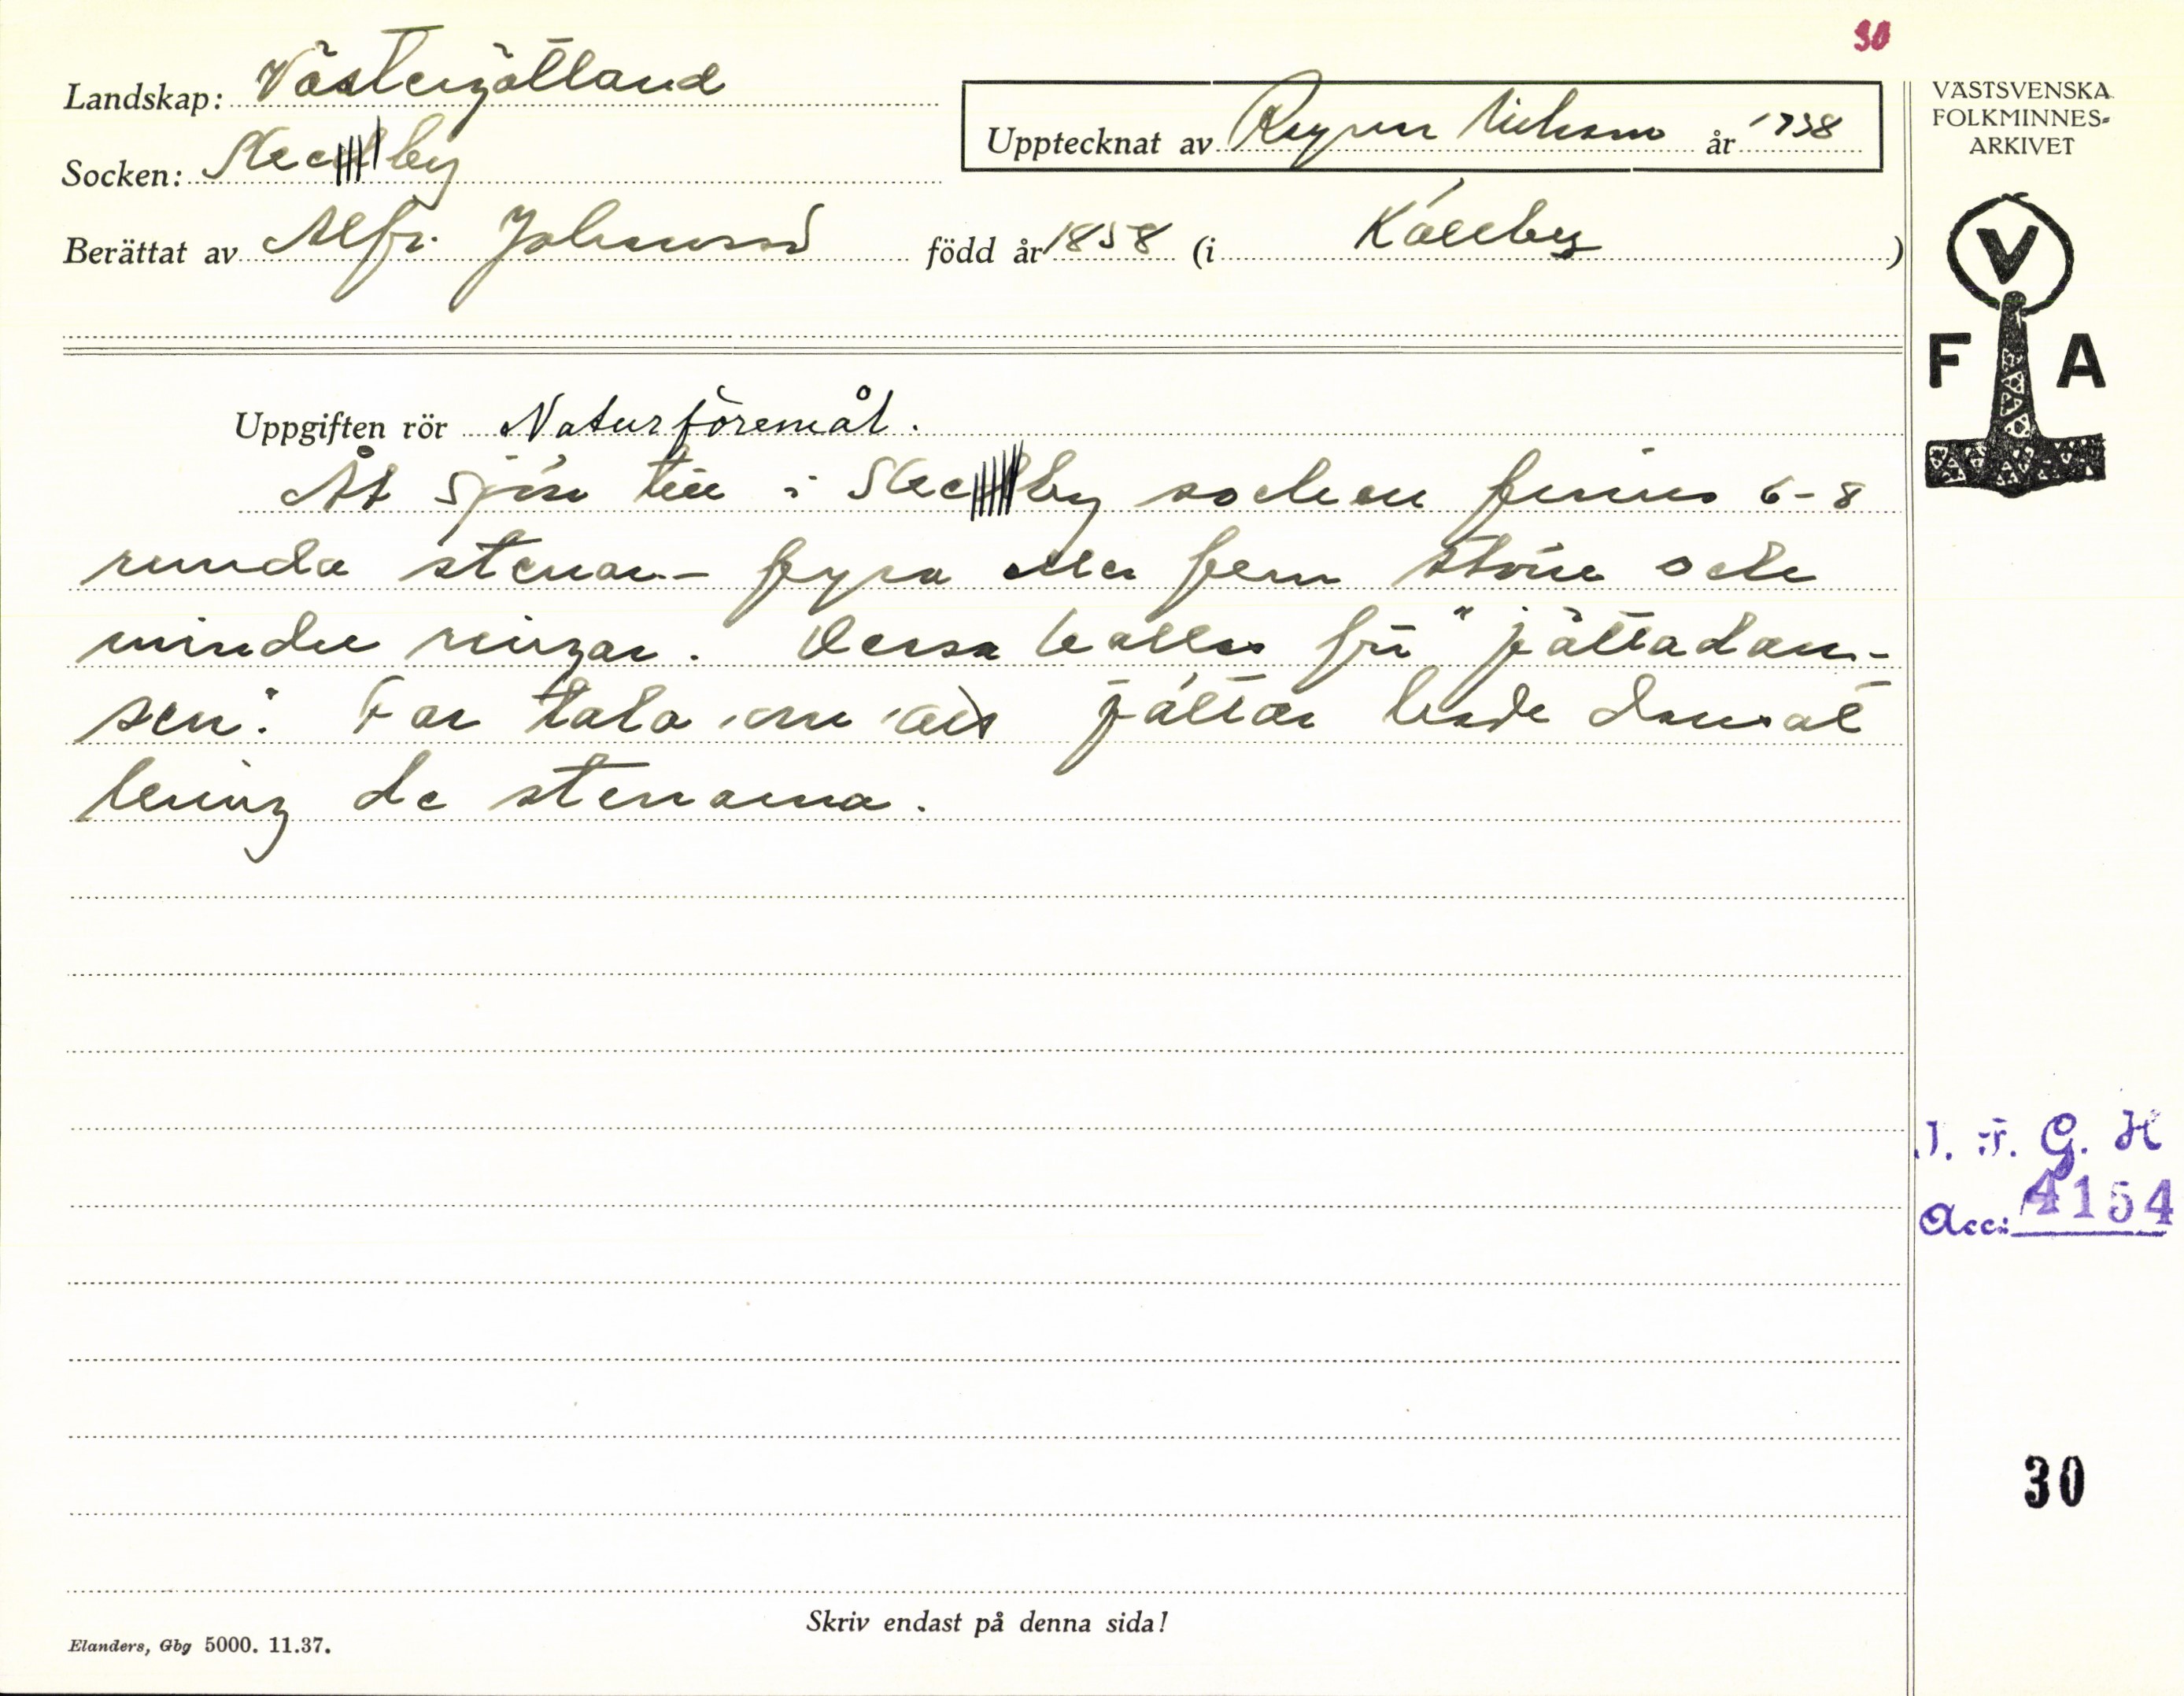 30
Landskap: Västergötland
Upptecknat av Ragnar Nilsson år 1938
VÄSTSVENSKA
FOLKMINNES-
ARKIVET
Socken: by
Berättat av Alfr. Johansson född år 1858 (i Källby)
V
F A
Uppgiften rör Naturföremål.
Åt sjön till i by socken finns 6-8
runda stenar - fyra eller fem större och
mindre ringar. Dessa kallas för "jättadan-
sen". Far tala om att jättar hade dansat
kring de stenarna.
I. F. G. H
Acc: 4154
30
Skriv endast på denna sida!
Elanders, Gbg 5000. 11.37.